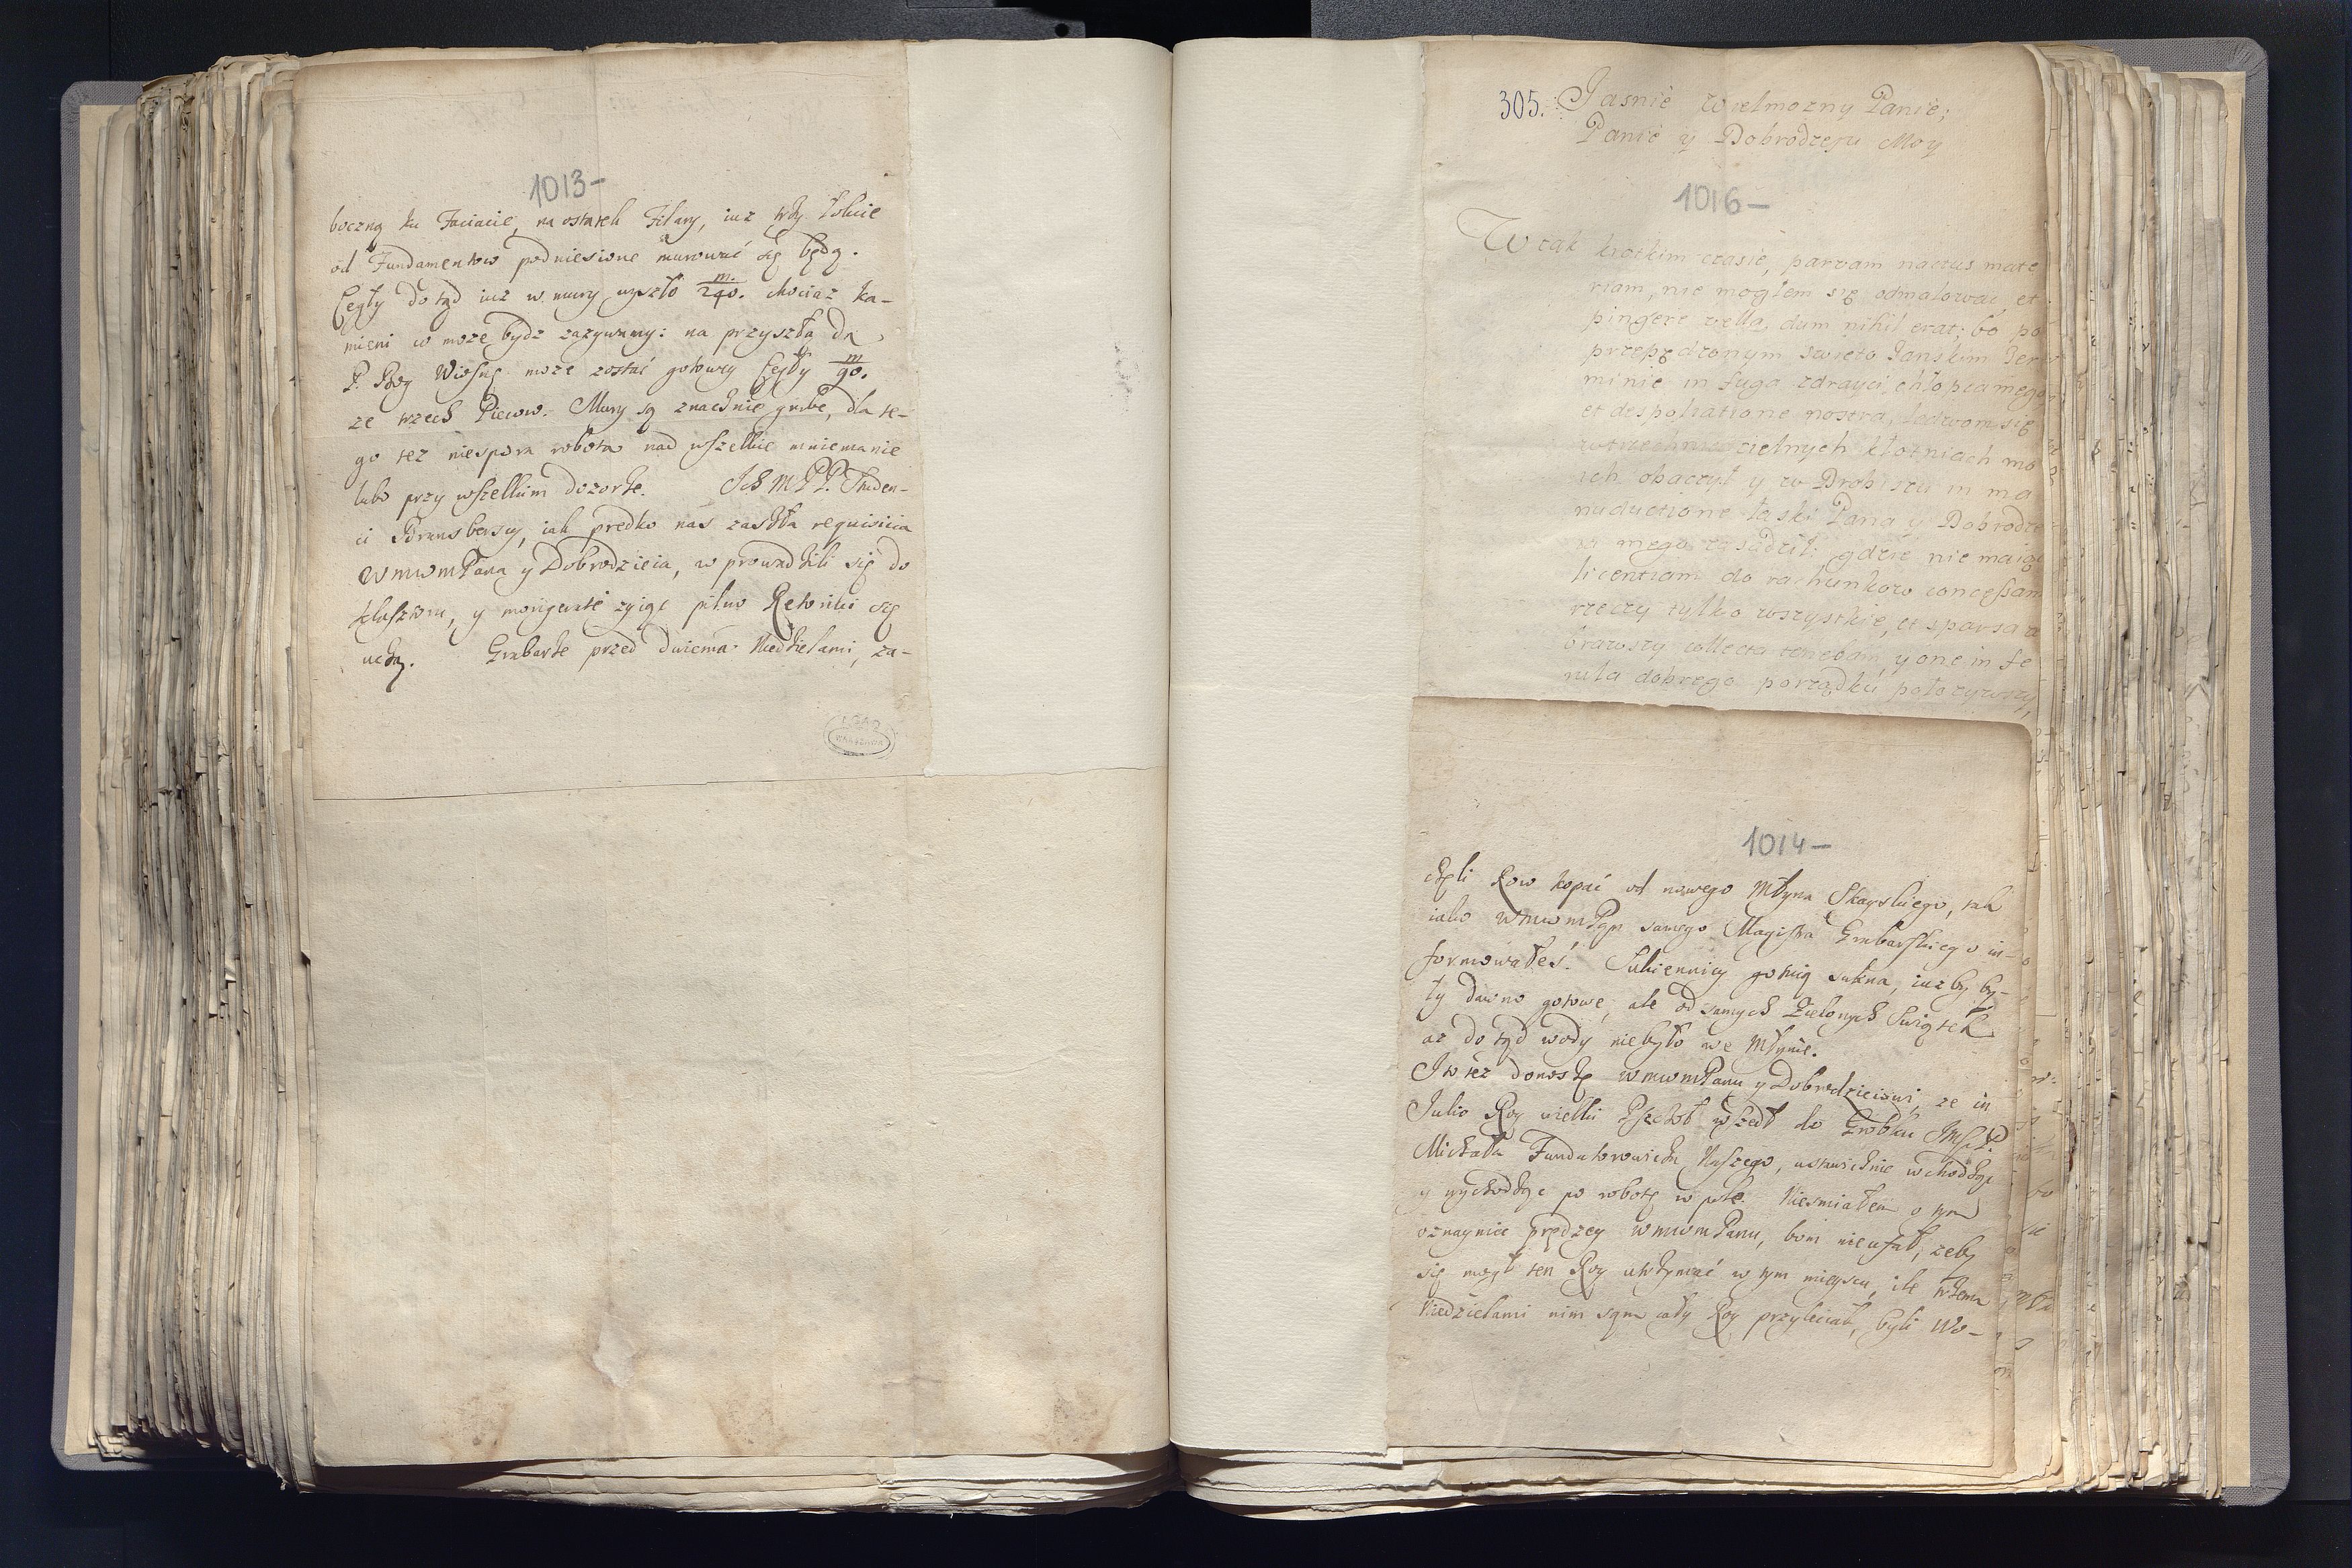 1013-
boczną ku Faciacie, na ostatek Filary, iuz trzy łokcie
od Fundamentow podniesione murować się będą.
Cegły do tąd iuz w mury wyszło m/240. chociaz ka-
mieni co moze bydz zazywamy: na przyszłą da
P. Bog Wiosnę moze zostać gotowey Cegły m/90.
ze trzech Piecow. Mury są znacznie grube, dla te-
go tez niespora robota nad wszelkie mniemanie
lubo przy wszelkim dozorze. Ich MPP. Studen-
ci Brunsberscy, iak prędko nas zaszła requisicia
WMWMPana y Dobrodzieia, wprowadzili się do
klasztoru, y morigeratè zyiąc pilno Retoriki się
uczą. Grabarze przed dwiema Niedzielami, za-
WARSZAWA
305. Jasnie Wielmozny Panie,
Panie y Dobrodzeju Moy
1016-
W tak krotkim czasie, parvam nactus mate
riam, nie mogłem się odmalować, et
pingere vella, dum nihil erat; bo po
przepędzonym swięto Janskim Ter
minie in fuga zdrayci chłopca mego
et despoliatione nostra, ledwom się
cielnych kłotniach mo
ich obaczył y w Drohiczu in ma
nuductione łaski Pana y Dobrodze
ia mego zasadził: gdzie nie maiąc
licentiam do rachunkow concessam
rzeczy tylko wszystkie, et sparsa
brawszy collecta tenebam, y one in se
rula dobrego porządku położywszy,
1014-
częli Row kopać od nowego Młyna Skarskiego, tak
iako WMWMPan samego Magistra Grabarskiego in-
formowałeś. Sukiennicy gotuią sukna, iuz by by-
ły dawno gotowe, ale od samych Zielonych Swiątek
az do tąd wody niebyło we Młynie.
I to tez donoszę WMWMPanu y Dobrodzieiowi, ze in
Julio Roy wielki Pszczoł wszedł do Grobku JMSP.
Michała Fundatorowicza Naszego, ustawicznie wchodząc
y wychodząc po robotę w pole. Niesmiałem o tym
oznaymić prędzey WMWMPanu, bom nieufał, zeby
się mogł ten Roy utrzymać w tym mieyscu, ile trzema
Niedzielami nim sam cały Roy przyleciał, byli Wo-